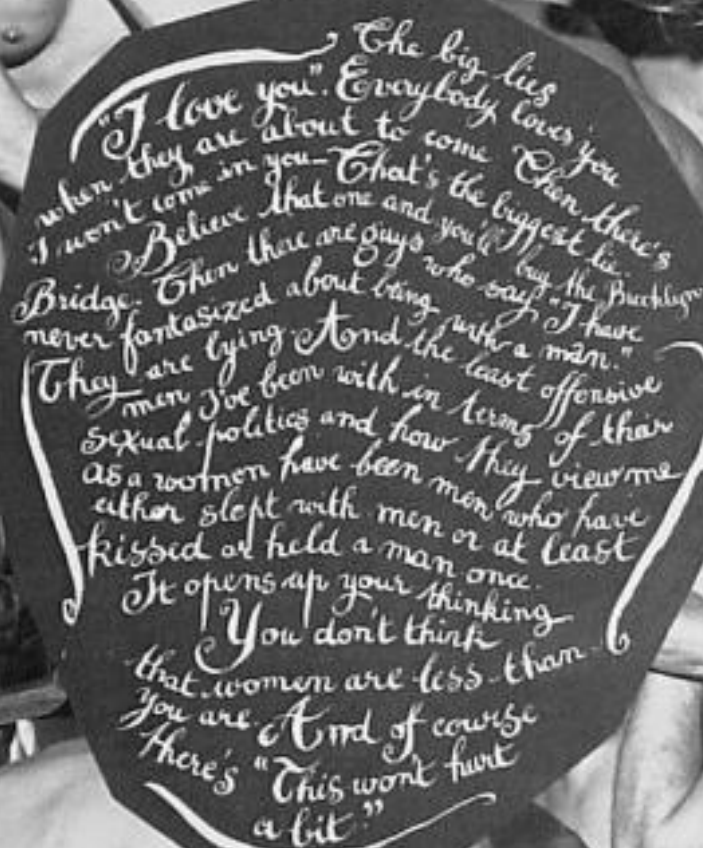 The big lies
"I love you". Everybody loves you
when they are about to come Then there's
I won't come in you—That's the biggest lie.
Believe that one and you'll buy the Brooklyn
Bridge. Then there are guys who say "I have
never fantasized about being with a man."
They are lying. And the least offensive
men I've been with in terms of their
sexual politics and how they view me
as a women have been men who have
either slept with men or at least
kissed or held a man once.
It opens up your thinking
You don't think
that women are less than
you are. And of course
there's "This won't hurt
a bit."